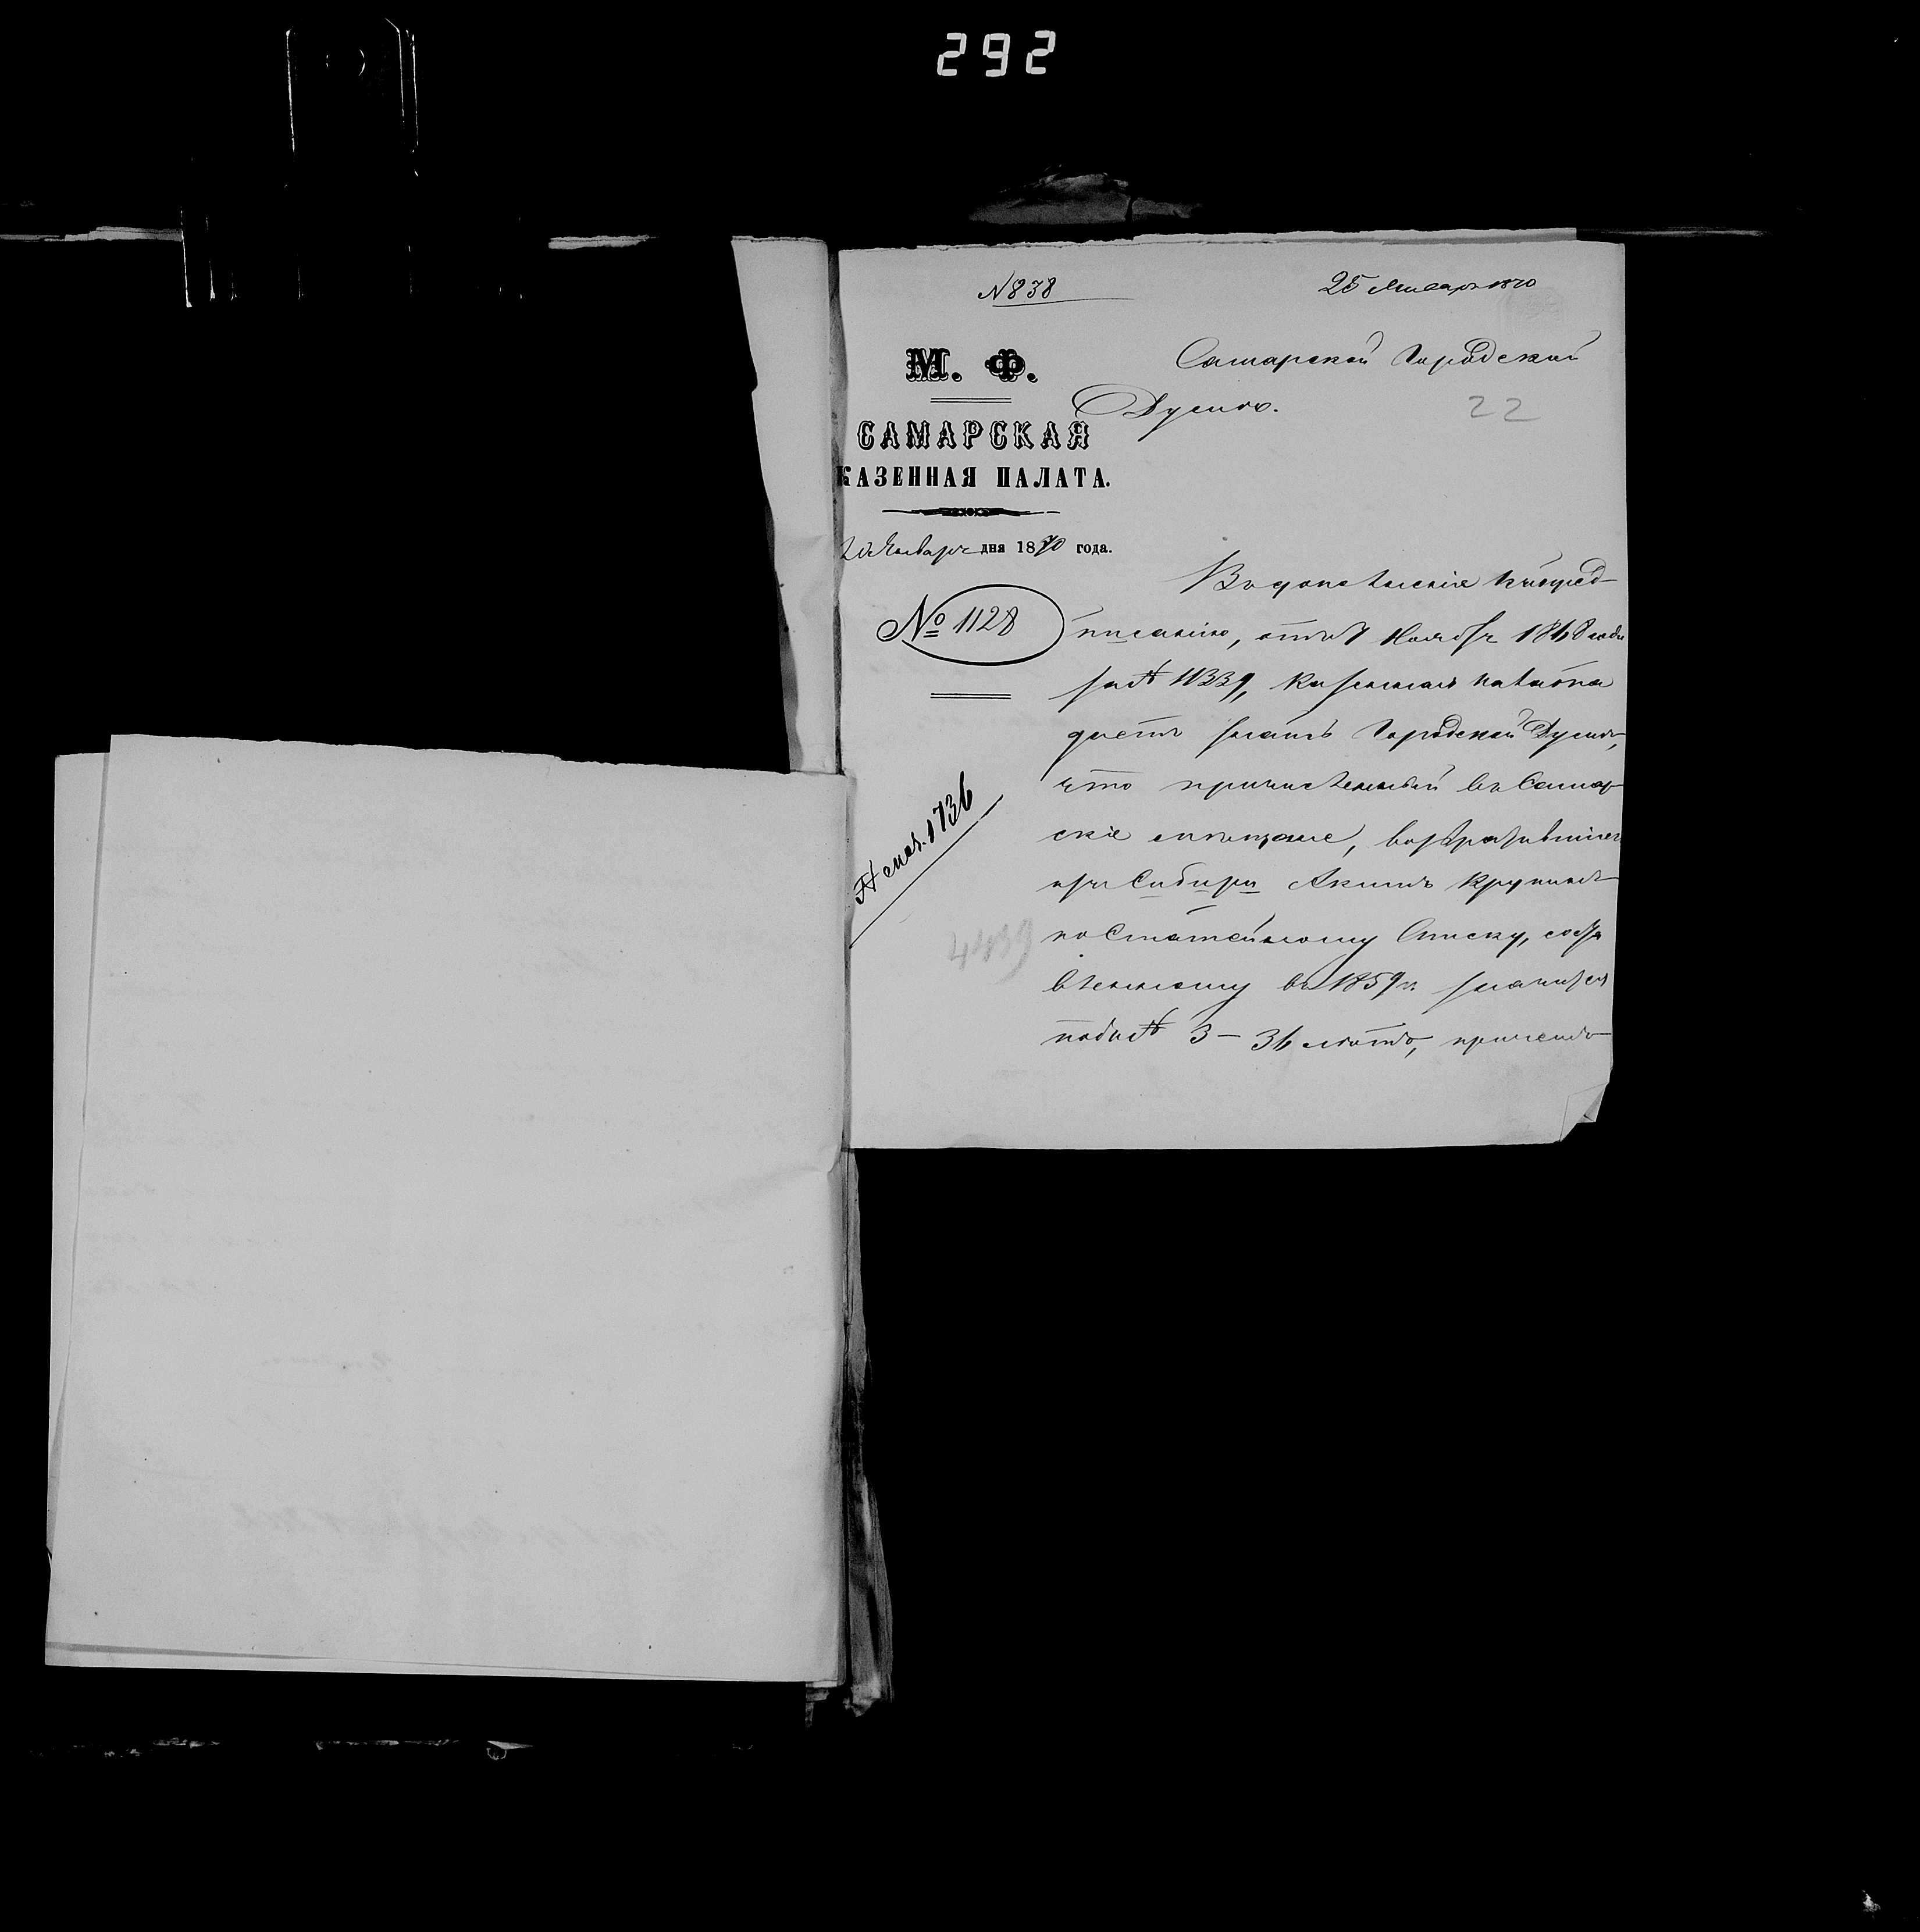 292
N 838
25 Января 1870
М. Ф.
САМАРСКАЯ
КАЗЕННАЯ ПАЛАТА.
Января дня 1870 года.
№ 1128
Самарской Городской
Думѣ.
22
Въ дополненіе къ пред-
писанію, отъ 7 Ноября 1868 года
за № 11339, Казенная палата
даетъ знать Городской Думѣ,
что причисленный въ Самар-
скіе мѣщане, возвратившійся
изъ Сибири Акимъ
по Статейному Списку, соста
вленному въ 1859 г. значился
подъ № 3 – 36 лѣтъ, причемъ
1736
4439